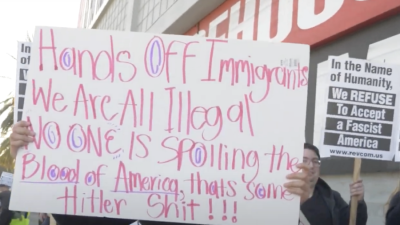 Hands Off Immigrants
We Are All Illegal
NO ONE IS SPOiling the
Blood of America, thats some
Hitler Shit!!!
In the Name
of Humanity,
We REFUSE
To Accept
a Fascist
America
www.refcom.us
In
of